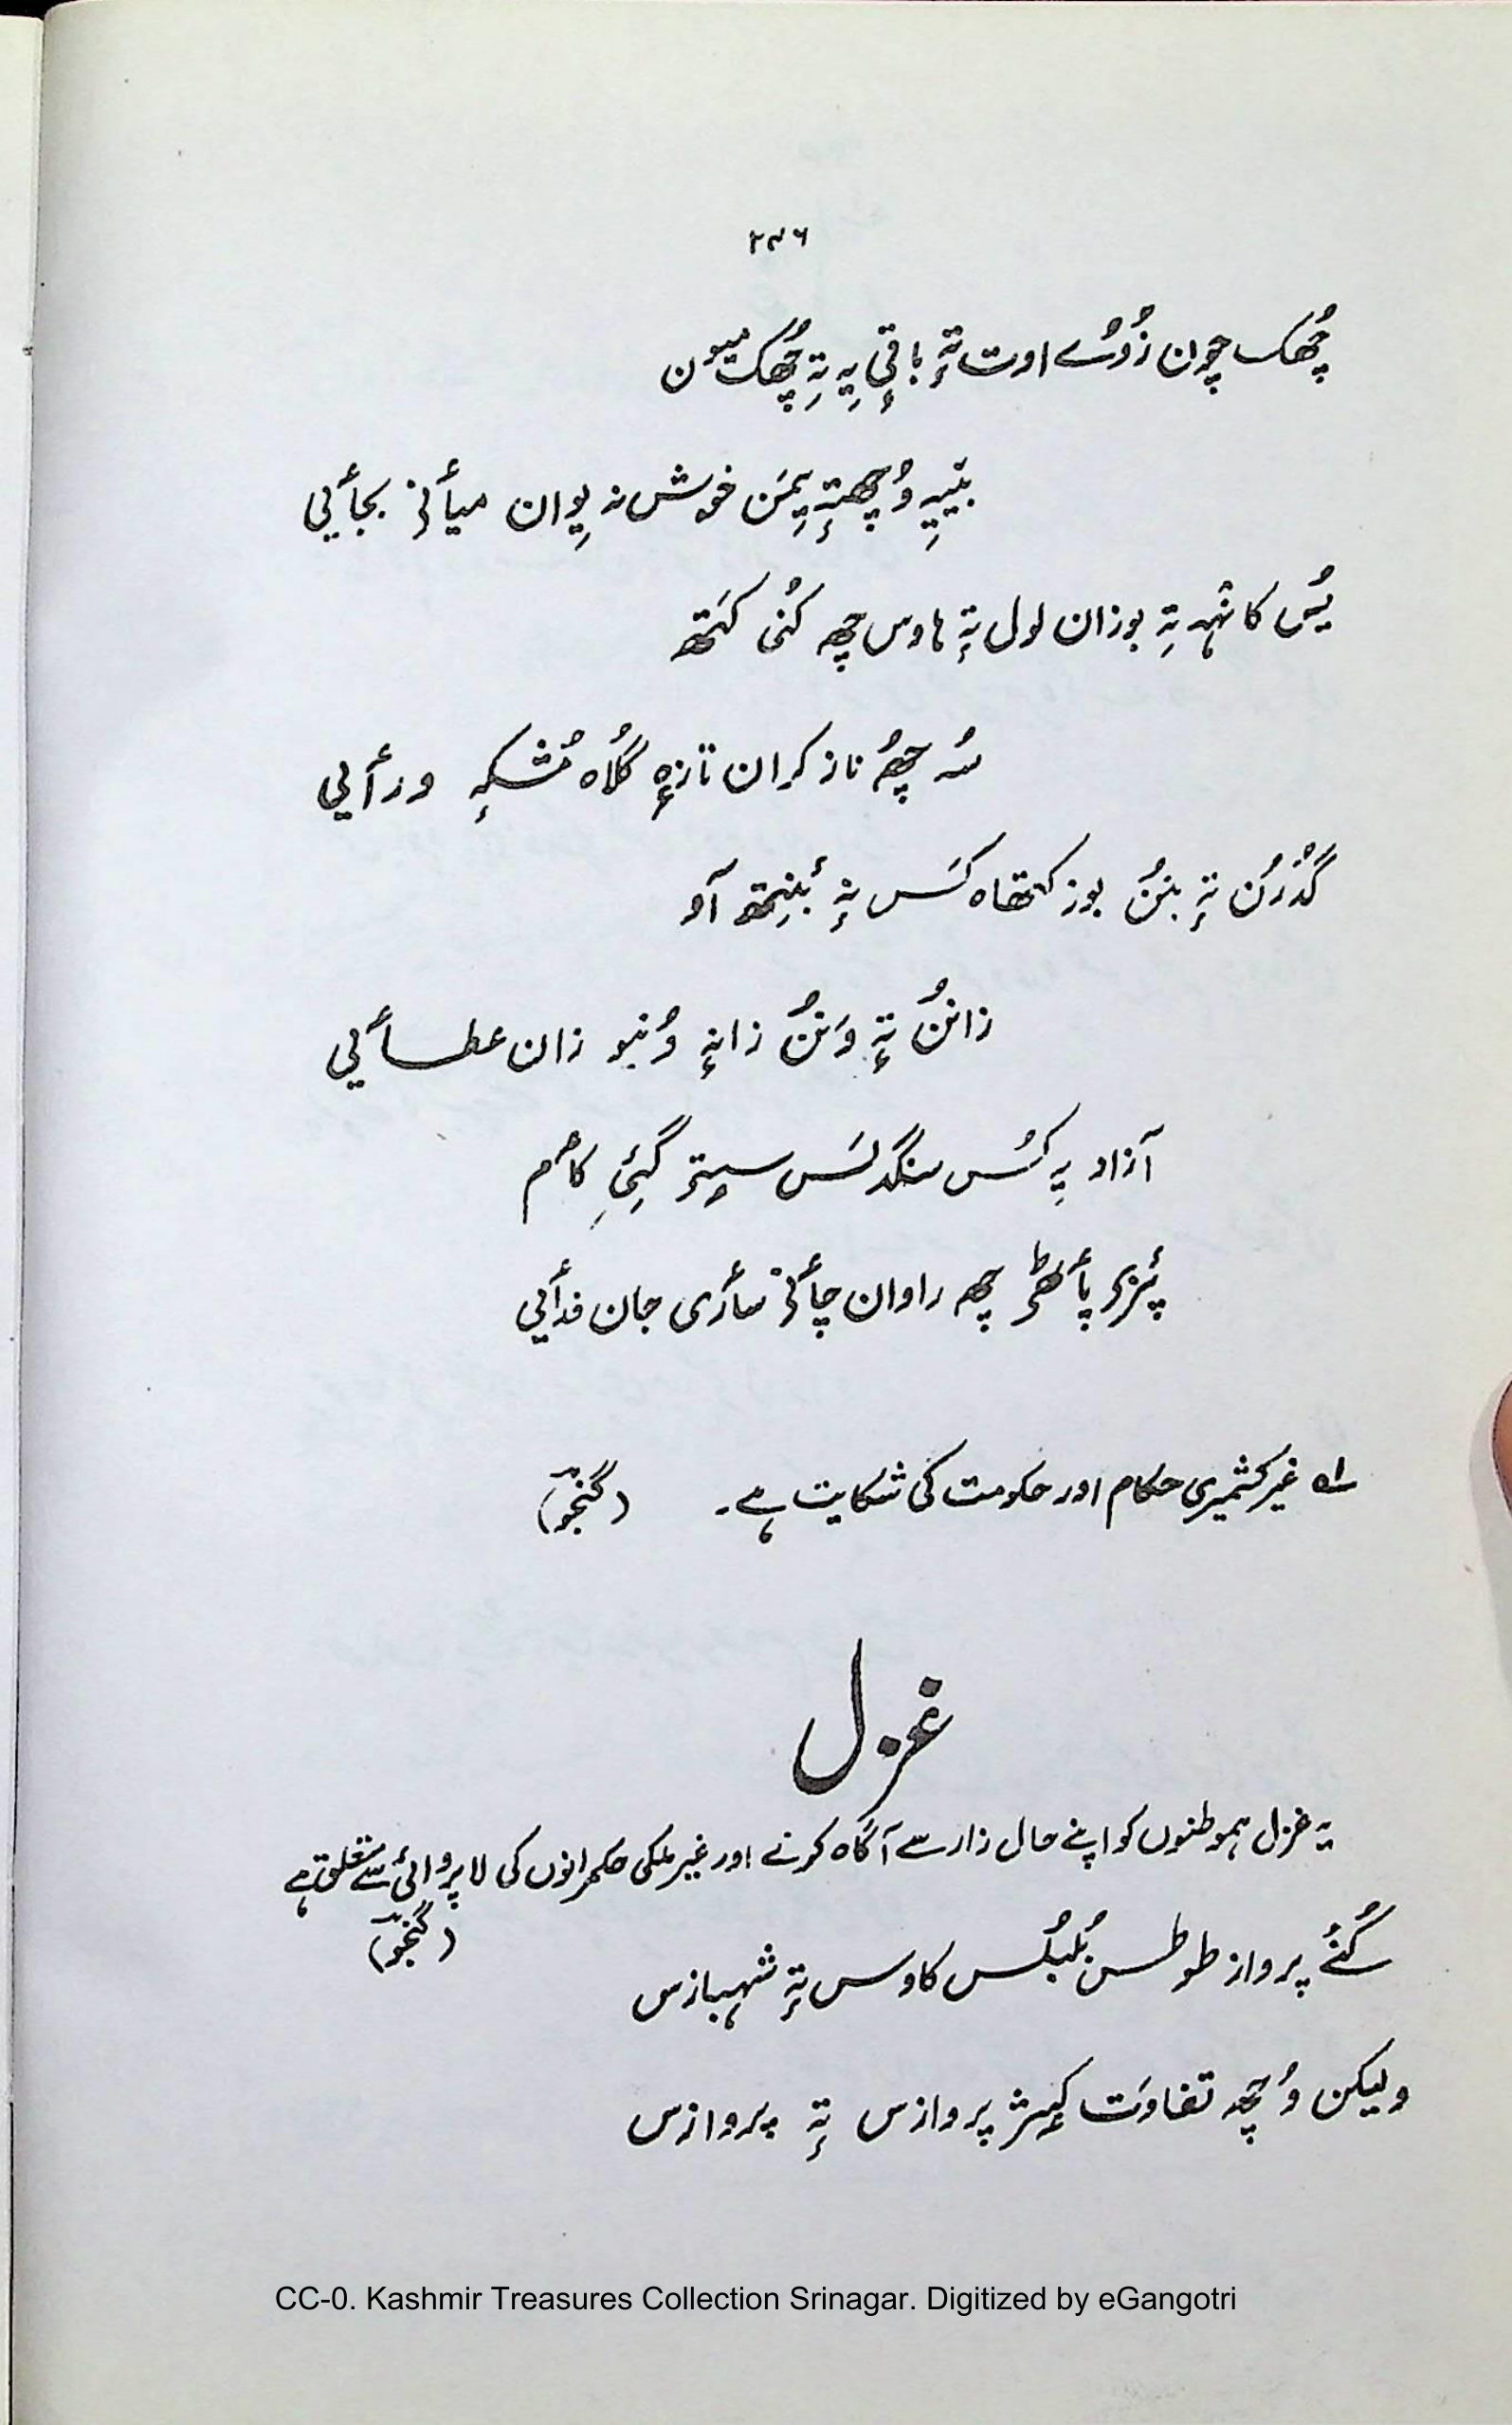 ۲۴۶
چُھک چون زُوٗے اوت تہٕ باقٕی یہِ تہِ چُھک میون
بیٚیہِ وُچھتہٕ یِمَن خوش نہ یِوان میأنؠ بجأیی
یُس کانٛہہ تہِ بوزان لول تہٕ ہاوس چھہ کُنی کَتھ
سُہ چھُہ ناز کران تازہٕ گُلاہ مُشکہٕ ورأیی
گُذرُن تہٕ بنُن بوز کتھاہ کَس نہٕ بٔنِتھ آو
زانُن تہٕ وَنُن زانہٕ وُنیو زان عطأیی
آزاد یہِ کُس سنگدلَس سٟتؠ گیٔیِ کٲم
پٔزؠ پأٹھؠ چھہ راوان چأنؠ سأری جان فدأیی
۱؎ غیر کشمیری حکام اور حکومت کی شکایت ہے۔ (گنجوؔ)
غزل
یہ غزل ہموطنوں کو اپنے حال زار سے آگاہ کرنے اور غیر ملکی حکمرانوں کی لاپروائی سے متعلق ہے
(گنجوؔ)
کُنُے پرواز طوطس بُلبُلس کاوس تہٕ شہبازس
ولیکن وُچھہ تفاوَت کٕیٛژ پروازس تہٕ پروازس
CC-0. Kashmir Treasures Collection Srinagar. Digitized by eGangotri